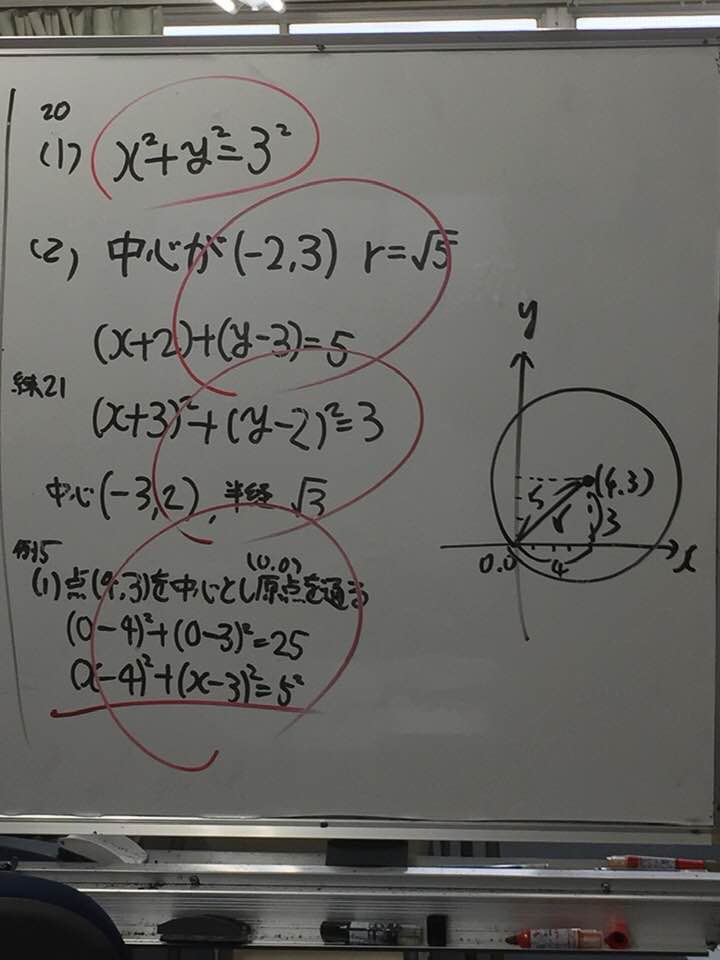 20
(1) x²+y²=3²
(2) 中心が(-2,3) r=√5
(x+2)+(y-3)=5
練21
(x+3)²+(y-2)²=3
中心(-3,2), 半径 √3
例5
(0,0)
(1)点(4,3)を中心とし原点を通る
(0-4)²+(0-3)²=25
(x-4)²+(x-3)²=5²
y
(4,3)
5
r
3
0.0
4
x